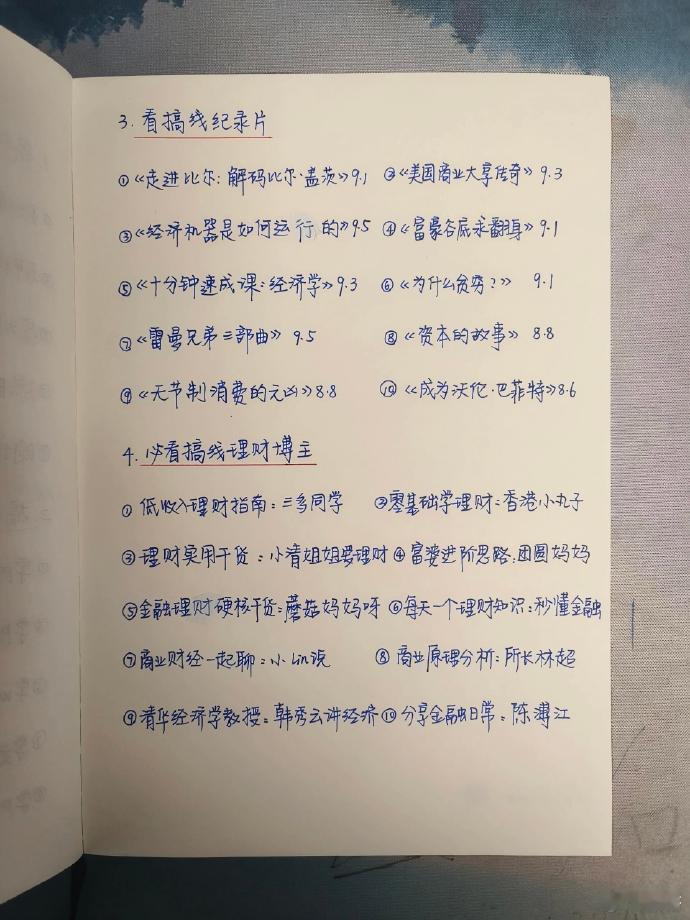 3. 看搞线纪录片
①《走进比尔：解码比尔·盖茨》9.1 ②《美国商业大享传奇》9.3
③《经济机器是如何运行的》9.5 ④《富豪谷底求翻身》9.1
⑤《十分钟速成课：经济学》9.3 ⑥《为什么贫穷？》 9.1
⑦《雷曼兄弟三部曲》 9.5 ⑧《资本的故事》 8.8
⑨《无节制消费的元凶》8.8 ⑩《成为沃伦·巴菲特》8.6
4. 必看搞线理财博主
① 低收入理财指南：三多同学 ②零基础学理财：香港小丸子
③ 理财实用干货：小清姐姐要理财 ④ 富婆进阶思路：团圆妈妈
⑤金融理财硬核干货：蘑菇妈妈呀 ⑥每天一个理财知识：秒懂金融
⑦商业财经一起聊：小Lin说 ⑧ 商业原理分析：所长林超
⑨清华经济学教授：韩秀云讲经济 ⑩ 分享金融日常：陈江